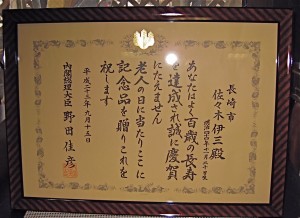 長崎市
佐々木伊三殿
あなたはよく百歳の長寿
を達成され誠に慶賀
にたえません
老人の日に当たりここに
記念品を贈りこれを
祝します
平成二十三年九月十五日
内閣総理大臣 野田佳彦